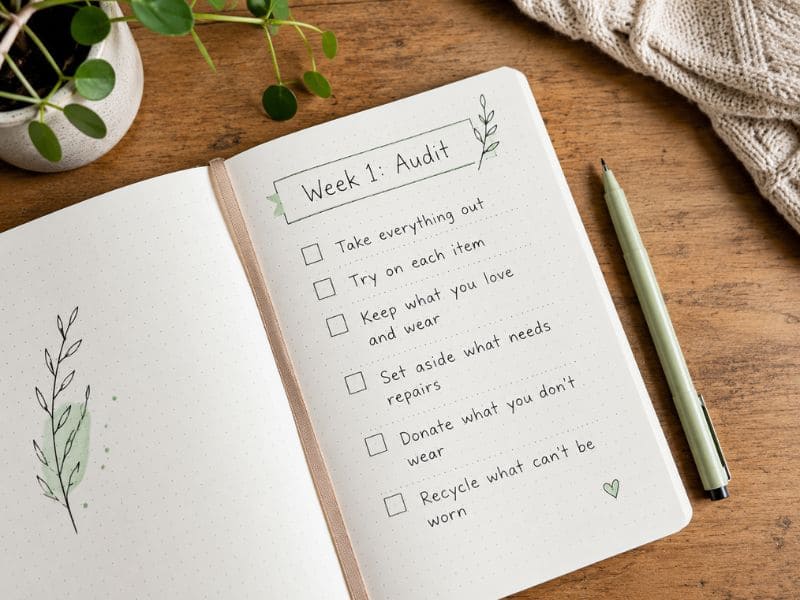 Week 1: Audit
Take everything out
Try on each item
Keep what you love
and wear
Set aside what needs
repairs
Donate what you don't
wear
Recycle what can't be
worn